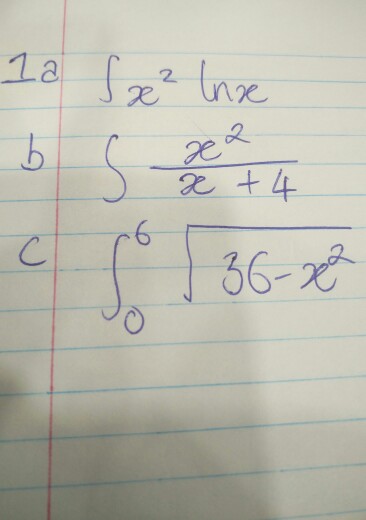 1a ∫x² lnx
b ∫ x²/(x + 4)
c ∫₀⁶ √(36-x²)